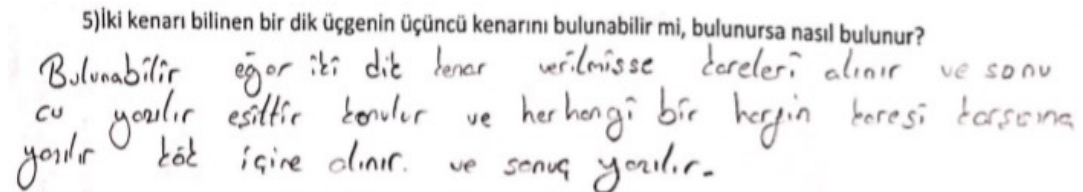 5)İki kenarı bilinen bir dik üçgenin üçüncü kenarını bulunabilir mi, bulunursa nasıl bulunur?
Bulunabilir eğer iki dik kenar verilmisse kareleri alınır ve sonu
cu yazılır esittir konulur ve her hangi bir harfin karesi karsısına
yazılır kök içine alınır. ve sonuç yazılır.